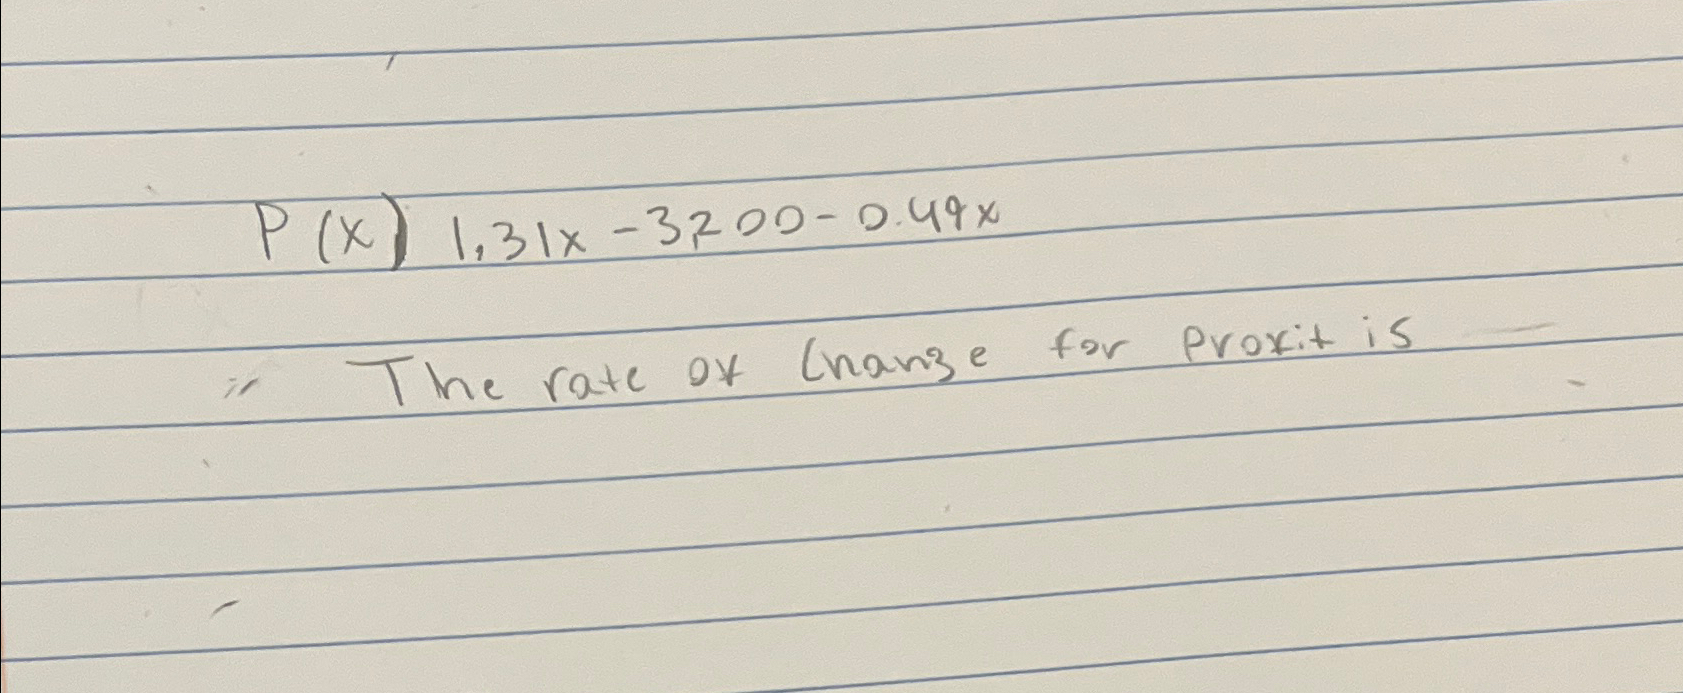 P(x) 1.31x - 3,200 - 0.49x
The rate of Change for Profit is